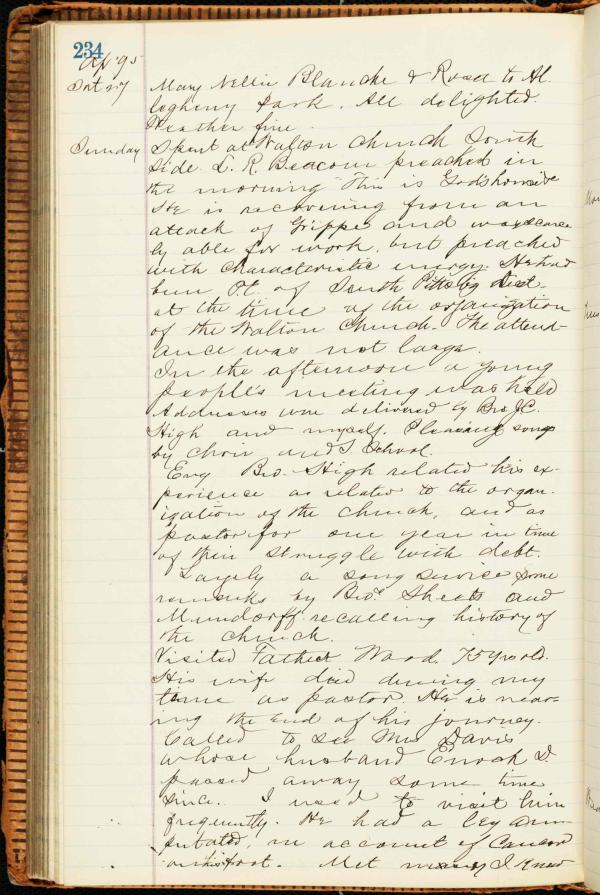 234
Ap '95
Sat 27 Mary Nellie Blanche & Rosa to Al
legheny Park. All delighted.
Weather fine.
Sunday Spent at Walton Church South
Side. L. R. Beacom preached in
the morning "This is Gods house"
He is recovering from an
attack of Grippe and was scarce
ly able for work. but preached
with characteristic energy. He had
been P.E. of South Pittsbg Dist.
at the time of the organization
of the Walton Church. The attend-
ance was not large.
In the afternoon a young
people's meeting was held
Addresses were delivered by Bro J.C.
High and myself. Pleasing songs
by choir and S School.
Evg Bro. High related his ex-
perience as relates to the organ-
ization of the church, and as
pastor for one year in time
of their struggle with debt.
Largely a song service some
remarks by Bros. Sheets and
Mundorff recalling history of
the church.
Visited Father Wood. 75 yrs old.
His wife died during my
time as pastor. He is near-
ing the end of his journey.
Called to see Mrs Davis
whose husband Enoch D.
passed away some time
since. I used to visit him
frequently. He had a leg am-
putated, on account of Cancer
on his foot. Met many I knew